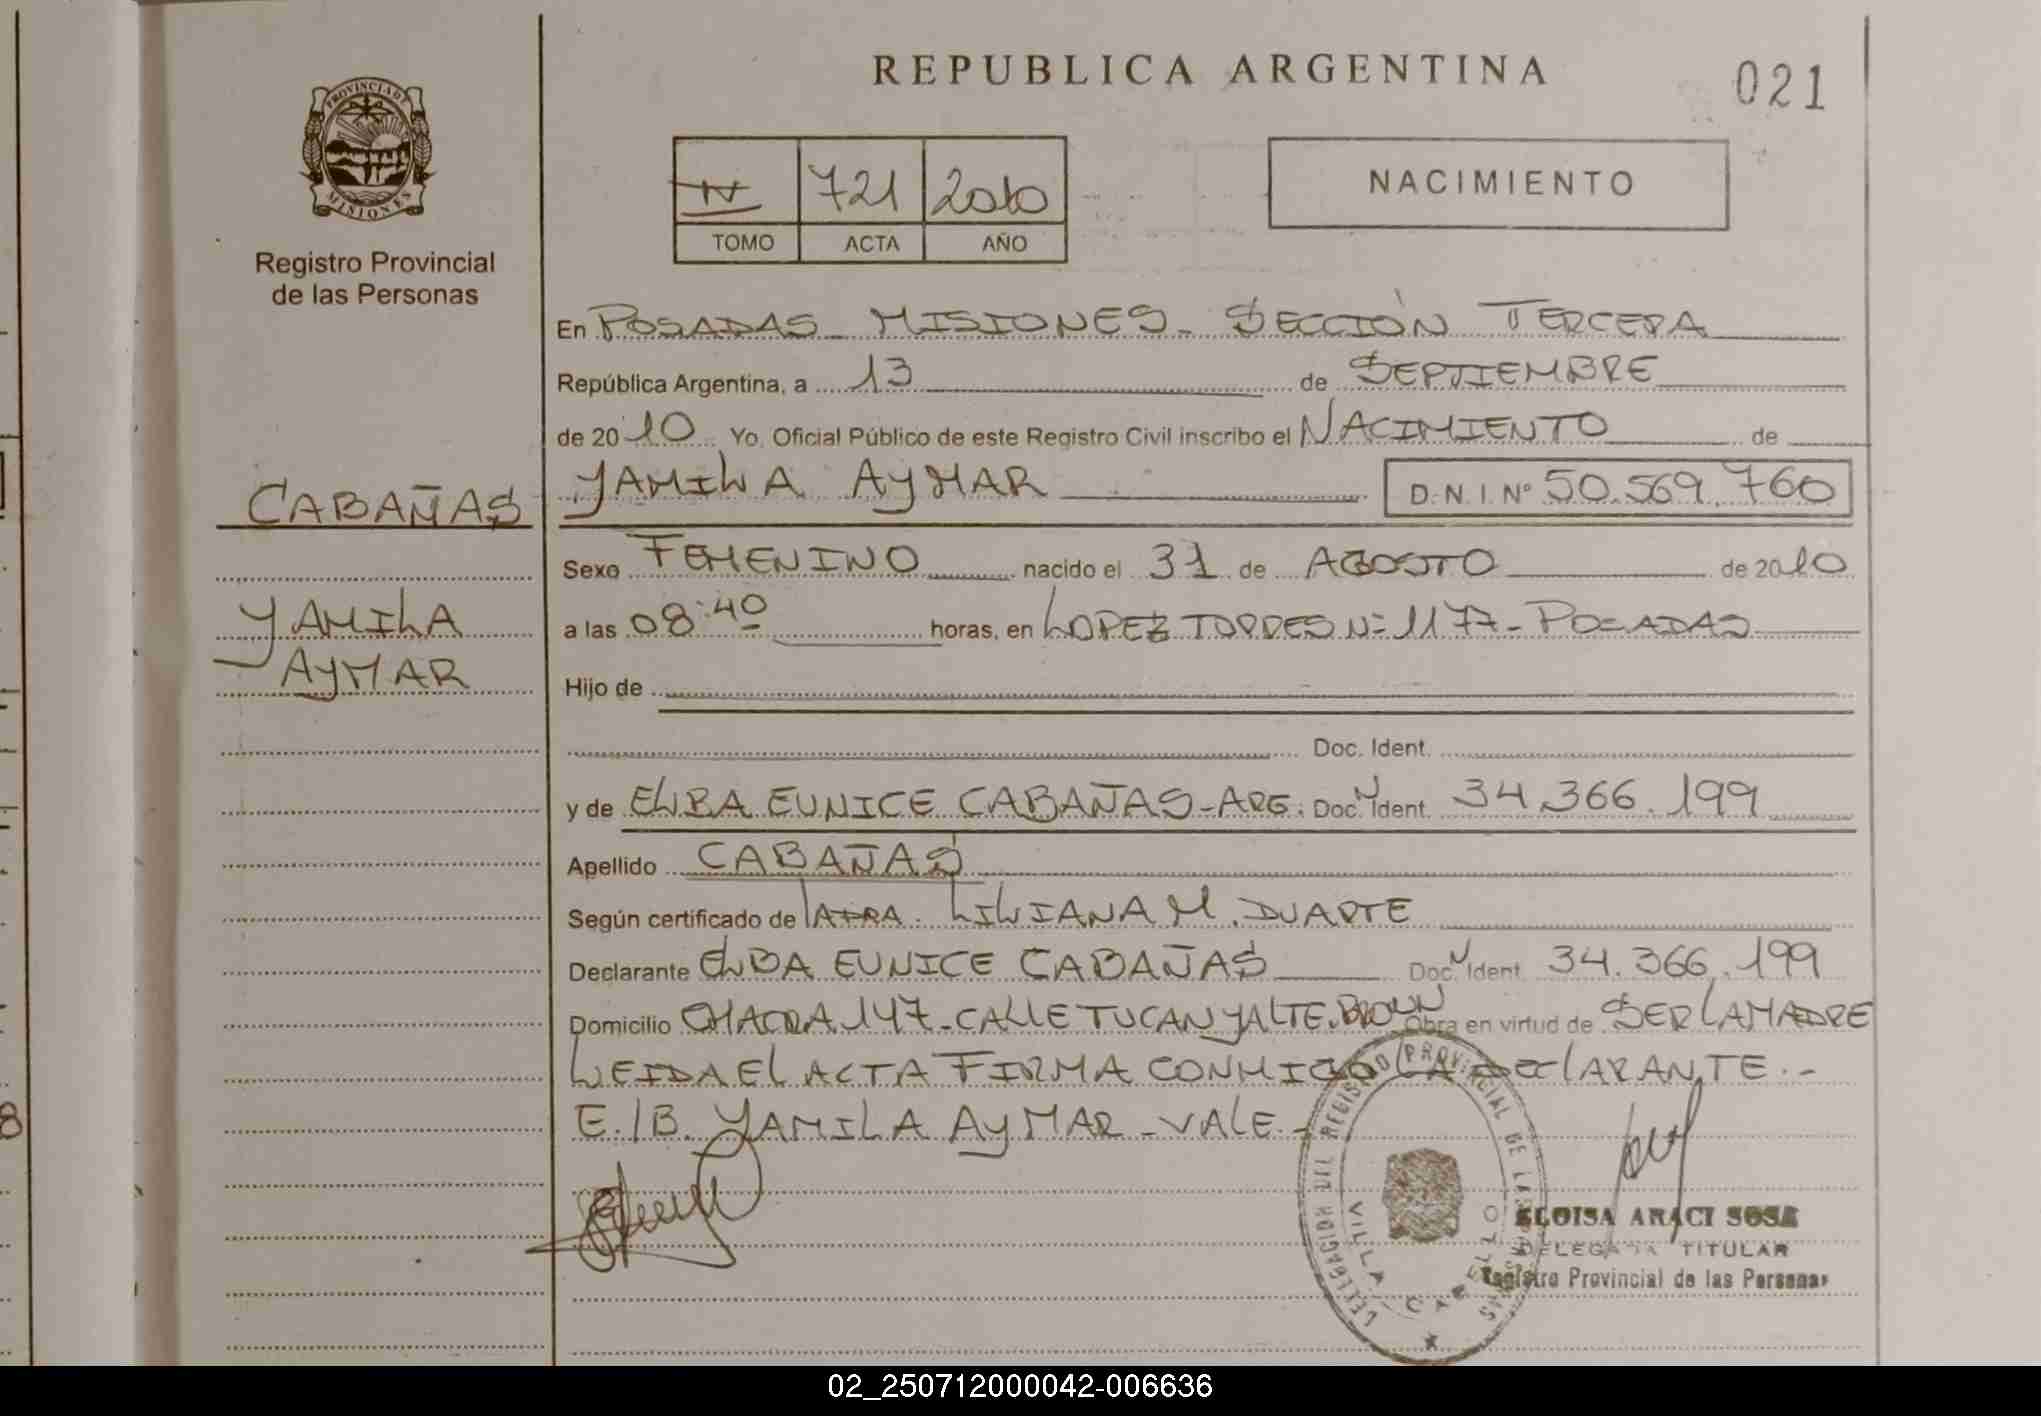 REPUBLICA ARGENTINA
021
PROVINCIA DE
MISIONES
Registro Provincial
de las Personas
N 721 2010
TOMO ACTA AÑO
NACIMIENTO
En POSADAS - MISIONES - SECCIÓN TERCERA
República Argentina, a 13 de SEPTIEMBRE
de 2010 Yo, Oficial Público de este Registro Civil inscribo el NACIMIENTO de
CABAÑAS YAMILA AYMAR D.N.I. Nº 50.569.760
Sexo FEMENINO nacido el 31 de AGOSTO de 2010
YAMILA
AYMAR
a las 08:40 horas, en LOPEZ TORRES Nº 1177 - POSADAS
Hijo de
Doc. Ident.
y de ELBA EUNICE CABAÑAS - ARG. Doc. Ident. 34.366.199
Apellido CABAÑAS
Según certificado de LILIANA M. DUARTE
Declarante ELBA EUNICE CABAÑAS Doc. Ident. 34.366.199
Domicilio CHACRA 147 - CALLE TUCAN Y ALTE. BROWN Obra en virtud de SER LA MADRE
LEIDA EL ACTA FIRMA CONMIGO LA DECLARANTE.-
E./B. YAMILA AYMAR - VALE.-
DELEGACION DEL REGISTRO PROVINCIAL DE LAS PERSONAS
VILLA CABELLO
ELOISA ARACI SOSA
DELEGADA TITULAR
Registro Provincial de las Personas
8
02_250712000042-006636